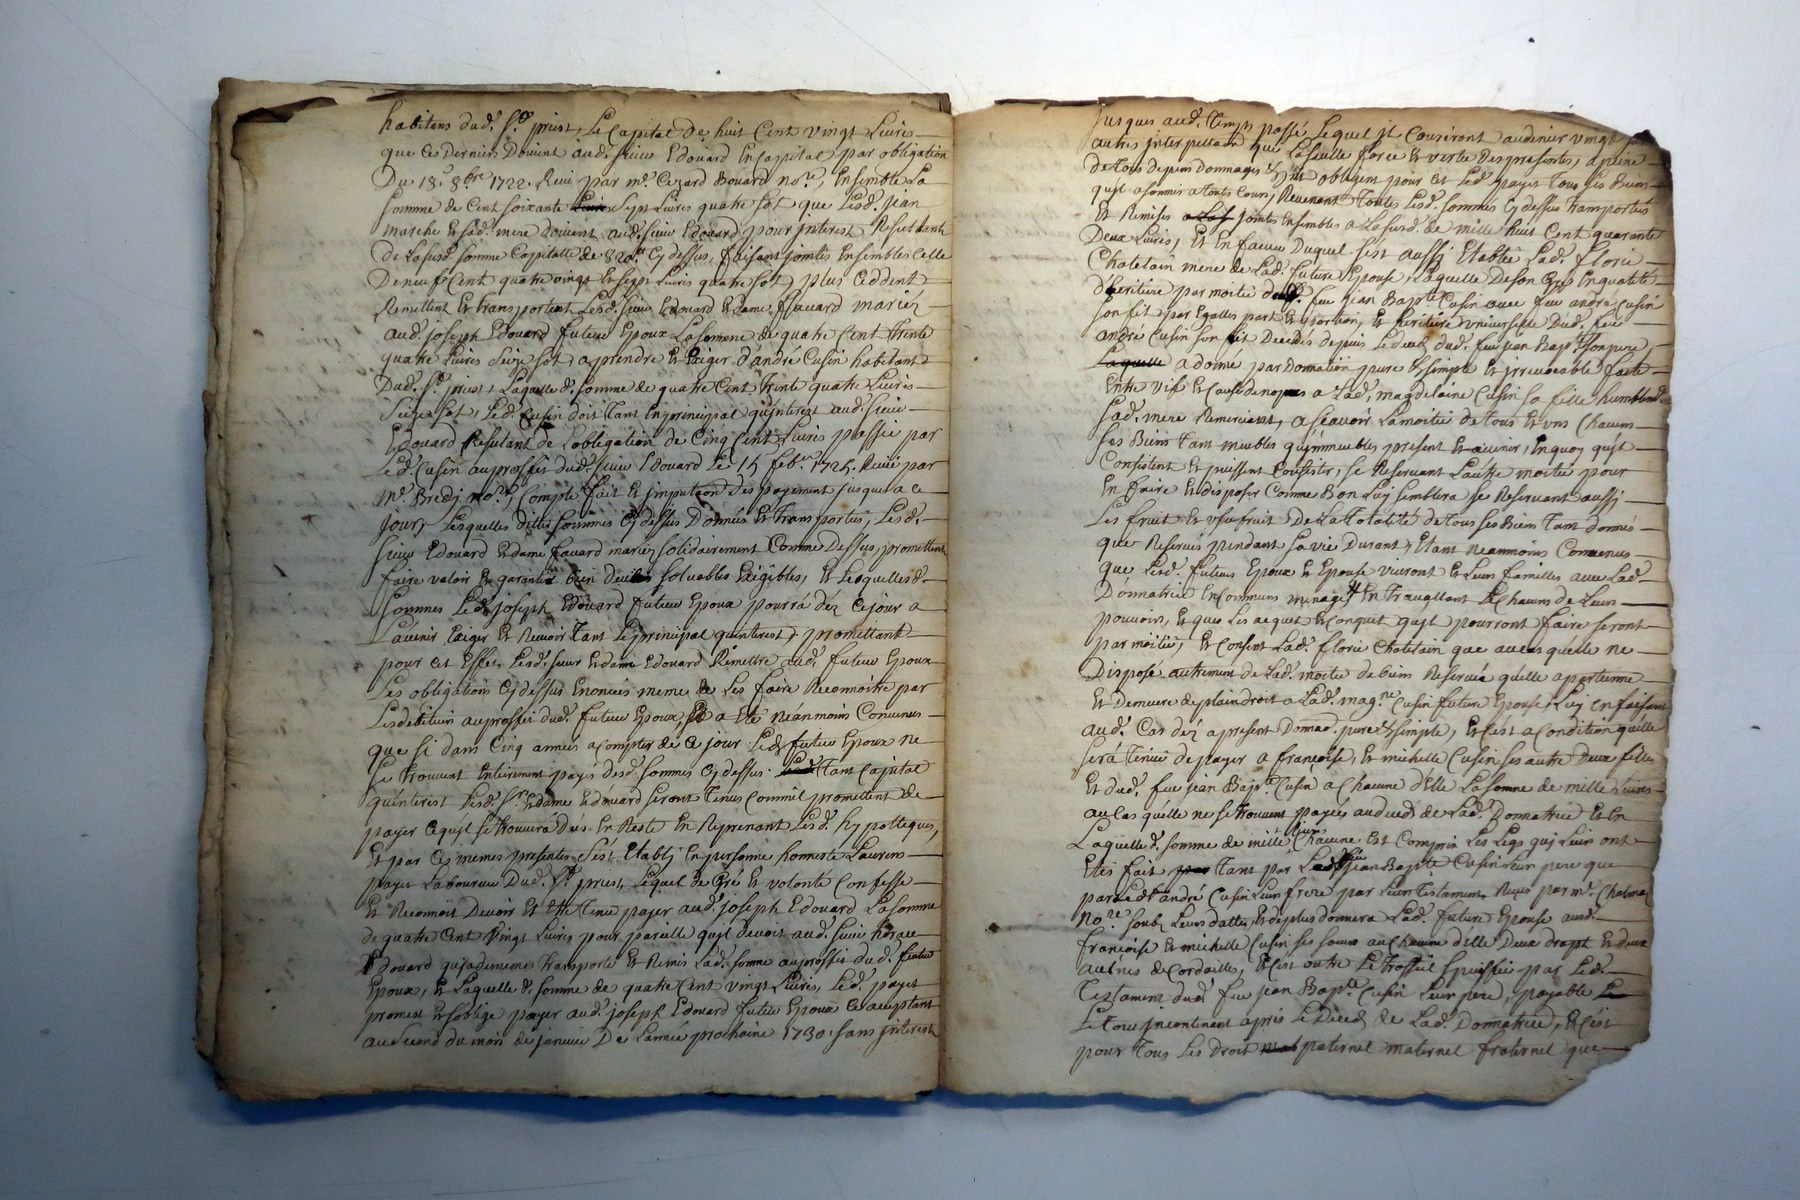 habitans dud. St. priest, Le Capital de huit Cent vingt Livres
que Ces Derniers Doivent aud. sieur Edouard En Capital par obligation
Du 18. 8bre 1722. Receu par me. Cezard Bouard nore, Ensemble La
Somme de Cent soixante Sept Livres quatre sot que Lesd. Jean
marche Et sad. mere doivent aud. sieur Edouard pour jnterest Resultants
de Lasusd. somme Capitalle de 820 Cy dessus, faisant jointes Ensembles Celle
De neuf Cent quatre vingt Et sept Livres quatre sot, plus Ceddent
Remettent Et transportent Lesd. sieur Edouard Et dame favard mariez
aud. joseph Edouard futeur Epoux La somme de quatre Cent trente
quatre Livres Seize sot aprendre Et Exiger d'andré Cusin habitant
Dud. St. priest, Laquelle d. somme de quatre Cent trente quatre Livres
Seize sot, Led. Cusin doit Tant En principal qu'interest aud. sieur
Edouard Resultant de Lobligation de Cinq Cent Livres passée par
Led. Cusin auproffit dud. sieur Edouard Le 15 feb. 1725. Receu par
me. Bredj nore, Compte fait Et jmputaon des payement jusques a ce
jour, Lesquelles dittes sommes Cy dessus Donnés Et transportés, Lesd.
sieur Edouard Et dame favard mariez solidairement Comme Dessus, promettent
faire valoir Et garantir bien solvables Exigibles, Et Lesquelles d.
sommes Led. joseph Edouard futeur Epoux pourrá déz Ce jour a
L'avenir Exiger Et Recevoir Tant Le principal quinterest promettant
pour Cet Effet Lesd. sieur Et dame Edouard Remettre aud. futeur Epoux
Les obligations Cy dessus Enoncés meme de Les faire Reconnoitre par
Lesdebiteurs auproffit dud. futeur Epoux, Et a Eté néanmoins Convenus
que si dans Cinq années a Compter de Ce jour Led. futeur Epoux ne
se trouvent Entierement payés desd. sommes Cy dessus Tant Capital
quinterest Lesd. sr. Et dame Edouard seront Tenus Comm'il promettent de
payer Ce qu'jl se trouverá Dus En Reste En Reprenant Lesd. hypotteques,
Et par Ces memes presentes, S'est Etablj En personne honneste Laurens
payet Laboureur Dud. St. priest, Lequel de Gré Et volonté Confesse
Et Reconnoit Devoir Et Etre Tenu payer aud. joseph Edouard La somme
de quatre Cent vingt Livres pour pareille qu'jl devoit aud. sieur
Edouard qui a de meme transporté Et Remis Lad. somme auproffit dud. futeur
Epoux, Et Laquelle d. somme de quatre Cent vingt Livres, Led. payet
promest Et s'oblige payer aud. joseph Edouard futeur Epoux Ce aceptant
au second du mois de janvier De L'année prochaine 1730. sans jnterest
jusques aud. Temps passé Lequel jl Couriront au denier vingt
autre jnterpellaon que La seulle force Et vertu des presentes, apeine
de Tous depens Dommages obligent pour Cet Led. payet Tous ses Biens
qu'jl a soumis a touts Cours, Revenant Toutes Lesd. sommes Cy dessus transportés
Et Remises jointes Ensembles a Lasusd. de mille huit Cent quarante
Deux Livres, Et En faveur Duquel s'est aussj Etablie Lad. florie
Chatelain mere de Lad. future Epouse, Laquelle De son Gré En qualité
d'heritiere par moitié de feu jean Bapte. Cusin avec feu andré Cusin
son fils par Egalles part Et portion, Et heritiere universelle Dud. feu
andré Cusin son fils Decedés depuis Le decez dud. feu jean Bapte. son pere,
a donné par Donnation pure Et simple Et jrrevocable faite
Entre vif Et Cause de noces a Lad. magdelaine Cusin sa fille humblemt
sad. mere Remerciant, a sçeavoir La moitié de Tous Et uns Chacuns
ses Biens Tant meubles qu'jmmeubles present Et avenir, En quoy qu'jl
Consistent Et puissent Consister, se Reservant Lautre moitié pour
En faire Et disposer Comme Bon Luy semblera se Reservant aussj
Les fruit Et usufruit De La Totalité de tous ses Biens Tant donnés
que Reservés pendant sa vie Durant, Etant neanmoins Convenus
que Lesd. futeurs Epoux Et Epouse vivront Et Leurs familles avec Lad.
Donnatrice En Commun menage En travaillant Chacuns de Leurs
pouvoirs, Et que Les acquet Et Conquet qu'jl pourront faire seront
par moitié, Et Consent Lad. florie Chatelain que au Cas qu'elle ne
Dispose autrement de Lad. moitié de biens Reservés qu'elle apartienne
Et demeure deplain droit a Lad. magne. Cusin future Epouse, Luy En faisant
aud. Cas déz apresent Donnaon. pure Et simple, Et C'est a Condition qu'elle
Será Tenüe de payer a françoise, Et michelle Cusin ses autre Deux filles
Et dud. feu jean Bapte. Cusin a Chacune d'Elle La somme de mille Livres
au Cas qu'elle ne se trouvent payées au decez de Lad. Donnatrice Et En
Laquelle d. somme de mille Livres Chacune Est Compris Les Legs quj Leurs ont
Etés fait Tant par Led. feu jean Bapte. Cusin Leur pere que
par Led. andré Cusin Leur frere par Leurs Testaments Reçus par me. Chalmas
nore. soub Leurs dattes, Et de plus donnera Lad. future Epouse aud.
françoise Et michelle Cusin ses soeurs a Chacune d'Elle Deux drapt Et deux
aulnes de Cordailles, Et C'est outre Le Troffeil Epuiffiés par Led.
Testament dud. feu jean Bapte. Cusin Leur pere, payable
Le Tous jncontinent aprés Le Decez de Lad. Donnatrice, Et C'est
pour Tous Les Droit paternel maternel fraternel que